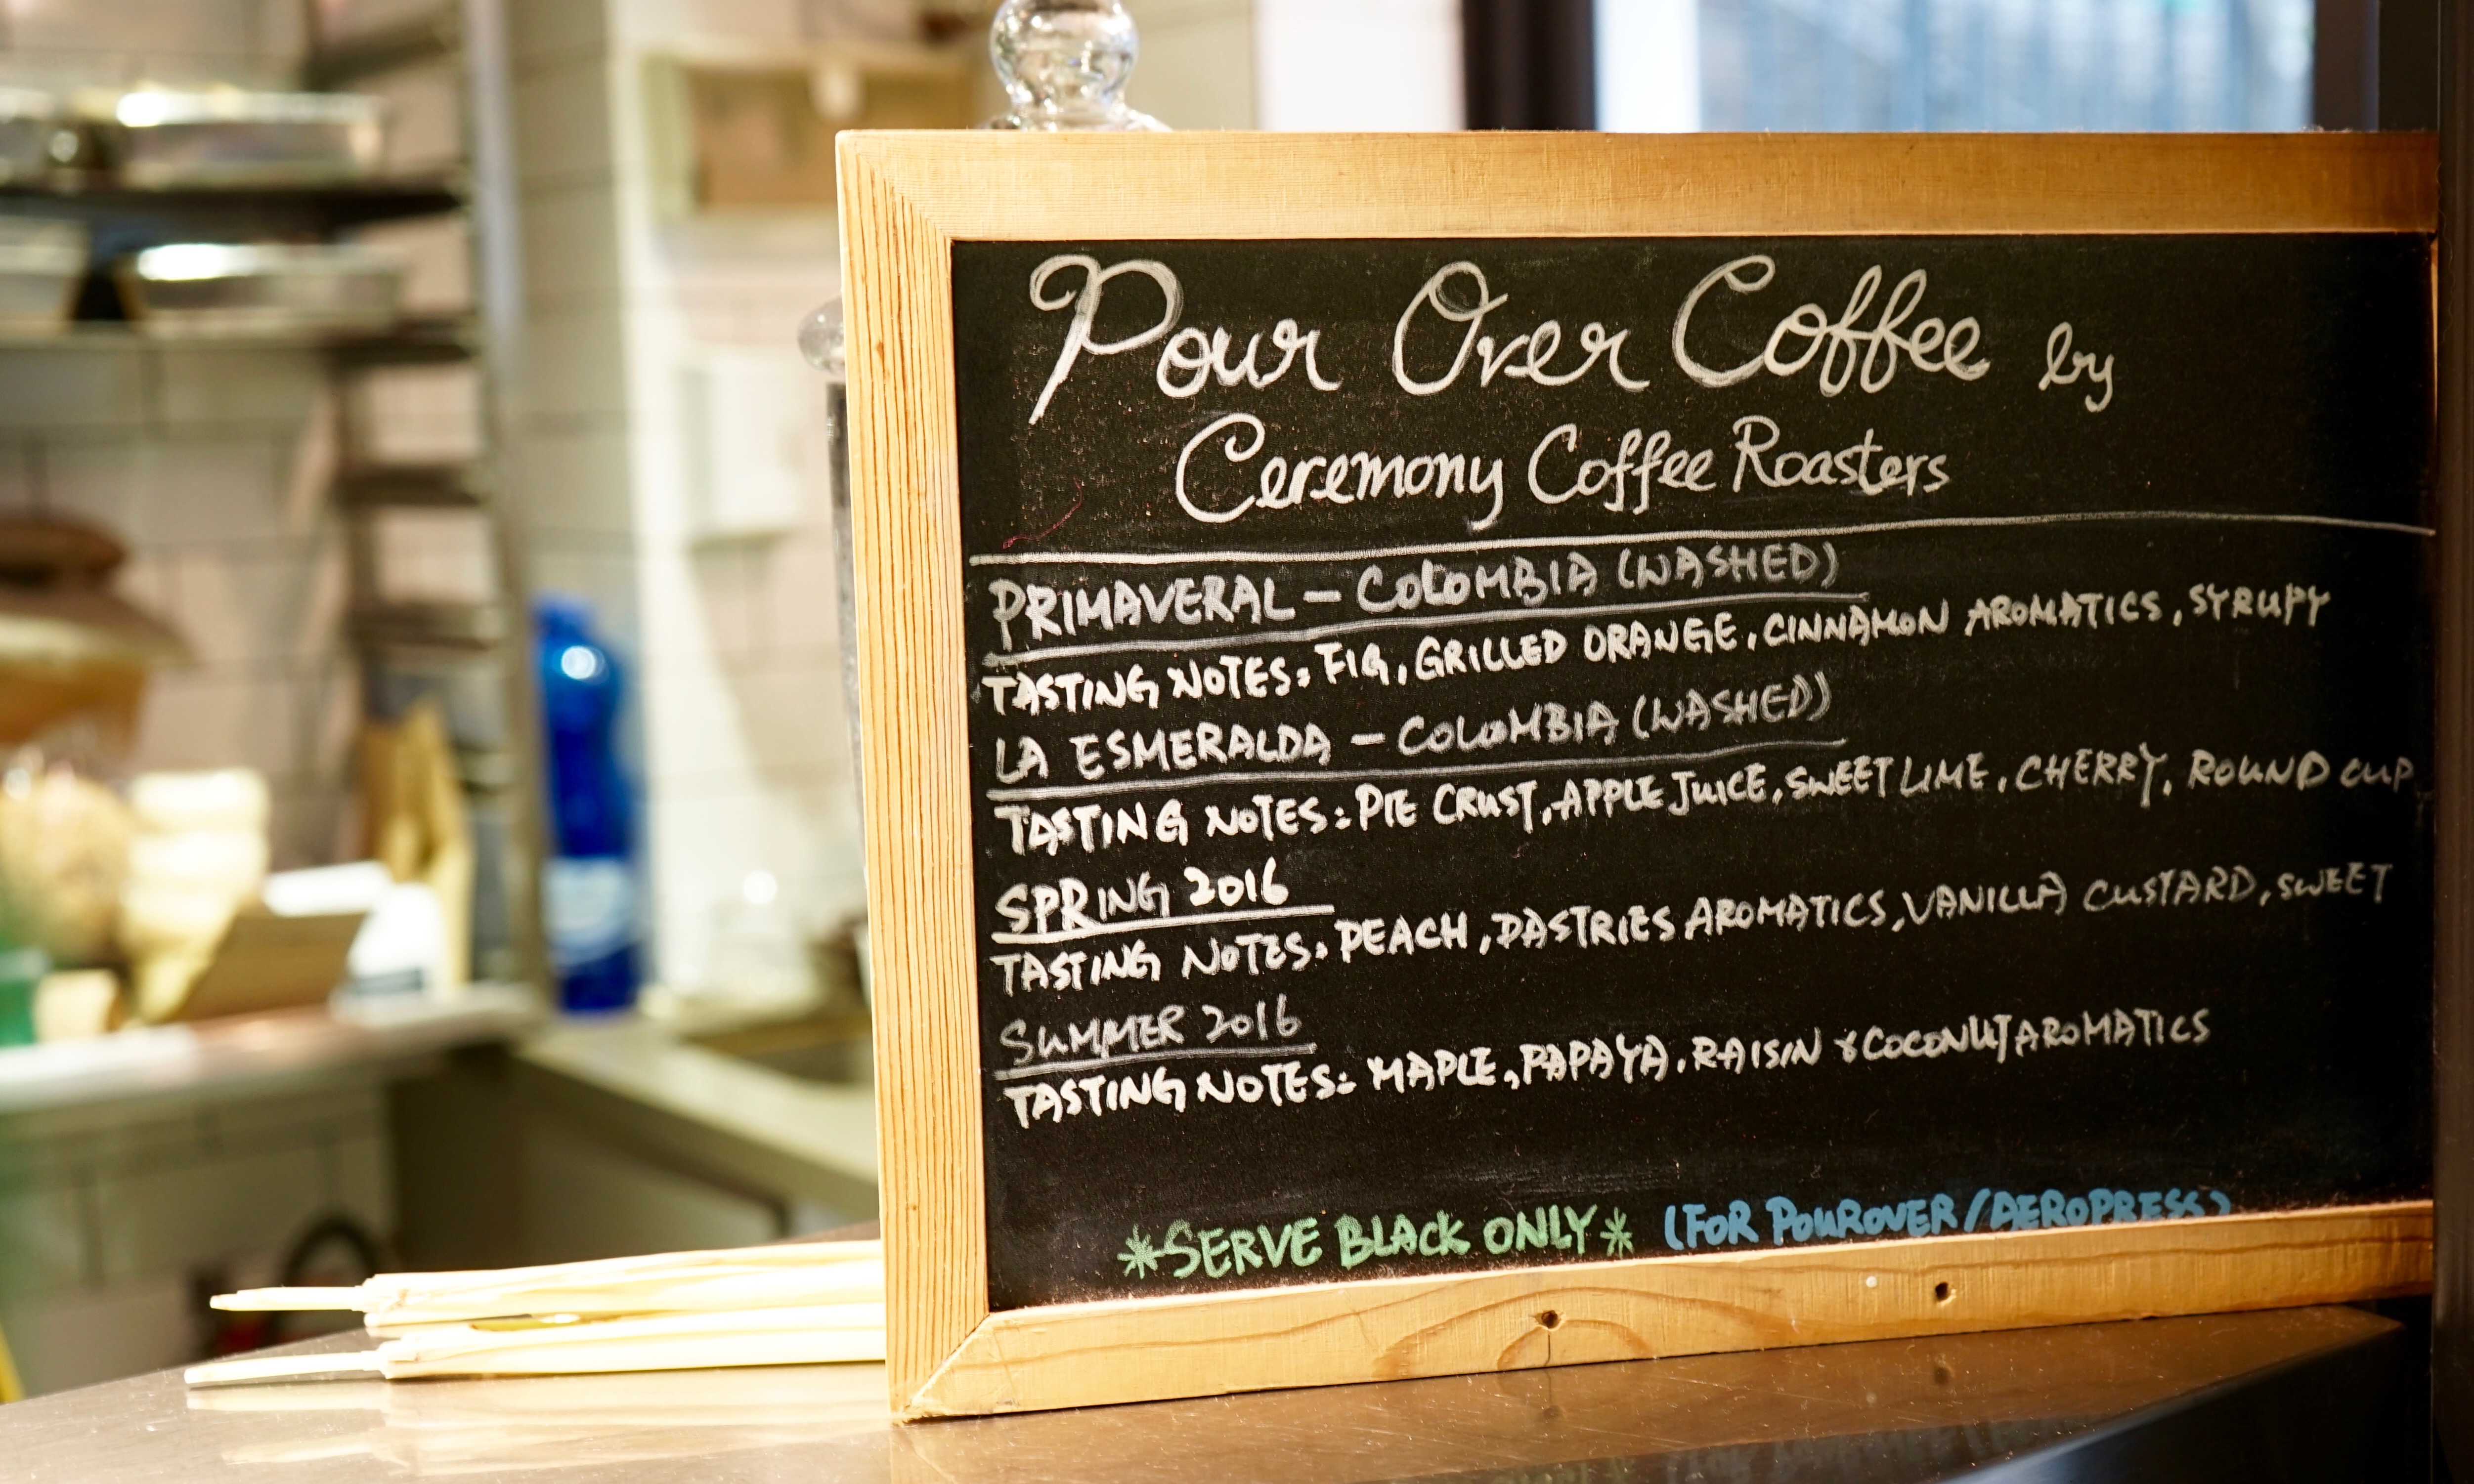 Pour Over Coffee by
Ceremony Coffee Roasters
PRIMAVERAL - COLOMBIA (WASHED)
TASTING NOTES: FIG, GRILLED ORANGE, CINNAMON AROMATICS, SYRUPY
LA ESMERALDA - COLOMBIA (WASHED)
TASTING NOTES: PIE CRUST, APPLE JUICE, SWEET LIME, CHERRY, ROUND CUP
SPRING 2016
TASTING NOTES: PEACH, PASTRIES AROMATICS, VANILLA CUSTARD, SWEET
SUMMER 2016
TASTING NOTES: MAPLE, PAPAYA, RAISIN & COCONUT AROMATICS
*SERVE BLACK ONLY* (FOR POUROVER/AEROPRESS)